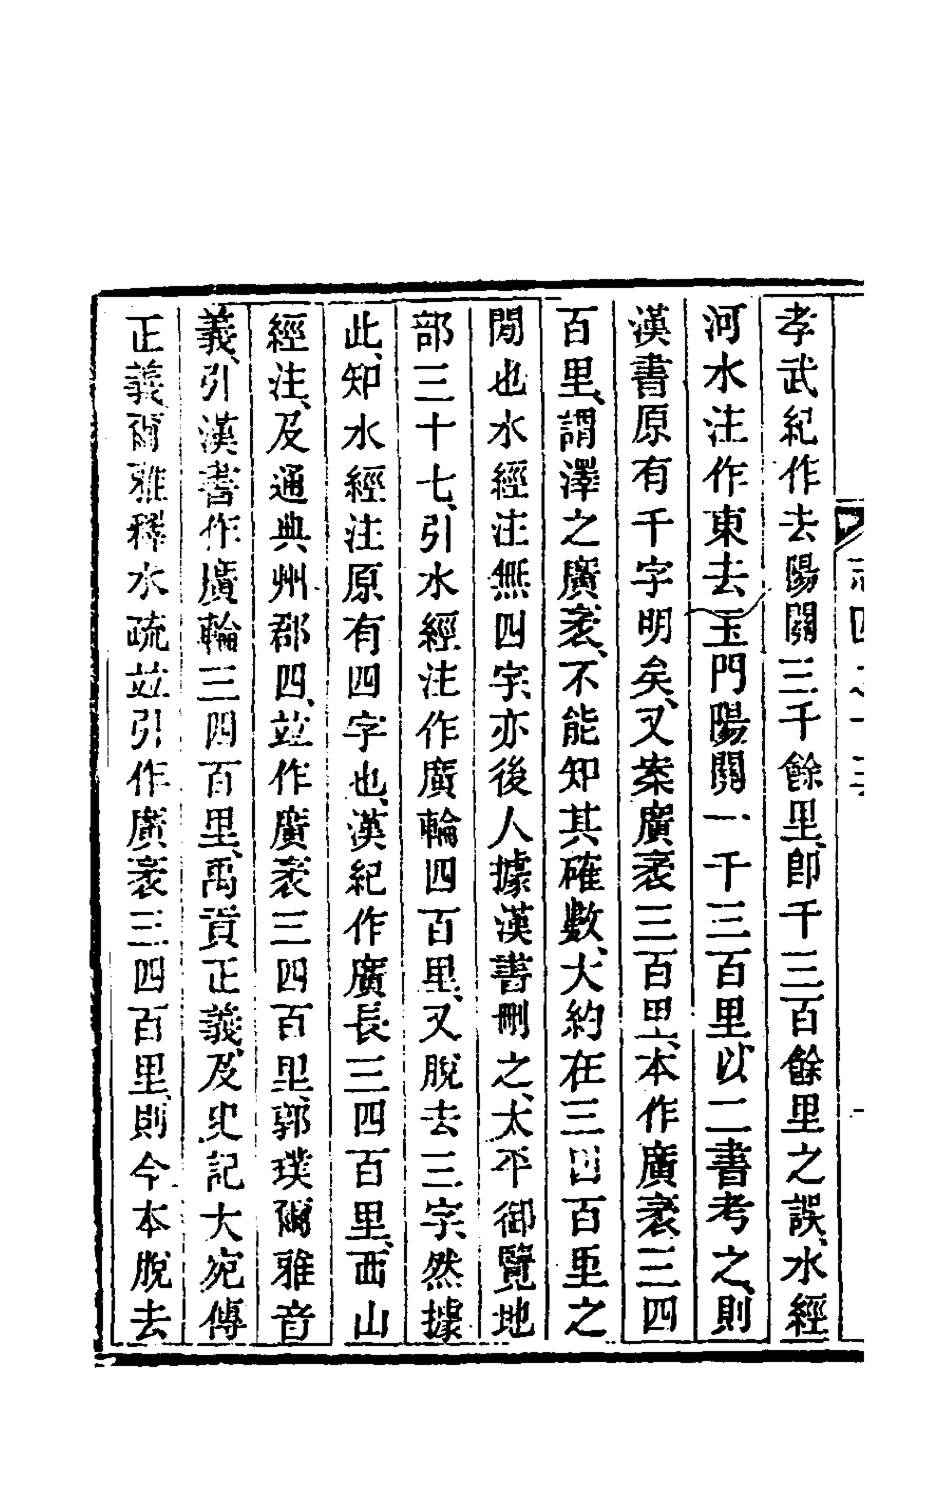 孝武紀作去陽關三千餘里、卽千三百餘里之誤、水經
河水注作東去玉門陽關一千三百里、以二書考之、則
漢書原有千字明矣、又案廣袤三百里、本作廣袤三四
百里、謂澤之廣袤、不能知其確數、大約在三四百里之
閒也水經注無四字、亦後人據漢書刪之、太平御覽地
部三十七、引水經注作廣輪四百里、又脫去三字、然據
此、知水經注原有四字也、漢紀作廣長三四百里、西山
經注、及通典州郡四、竝作廣袤三四百里、郭璞爾雅音
義、引漢書作廣輪三四百里、禹貢正義、及史記大宛傳
正義、爾雅釋水疏竝引作廣袤三四百里、則今本脫去